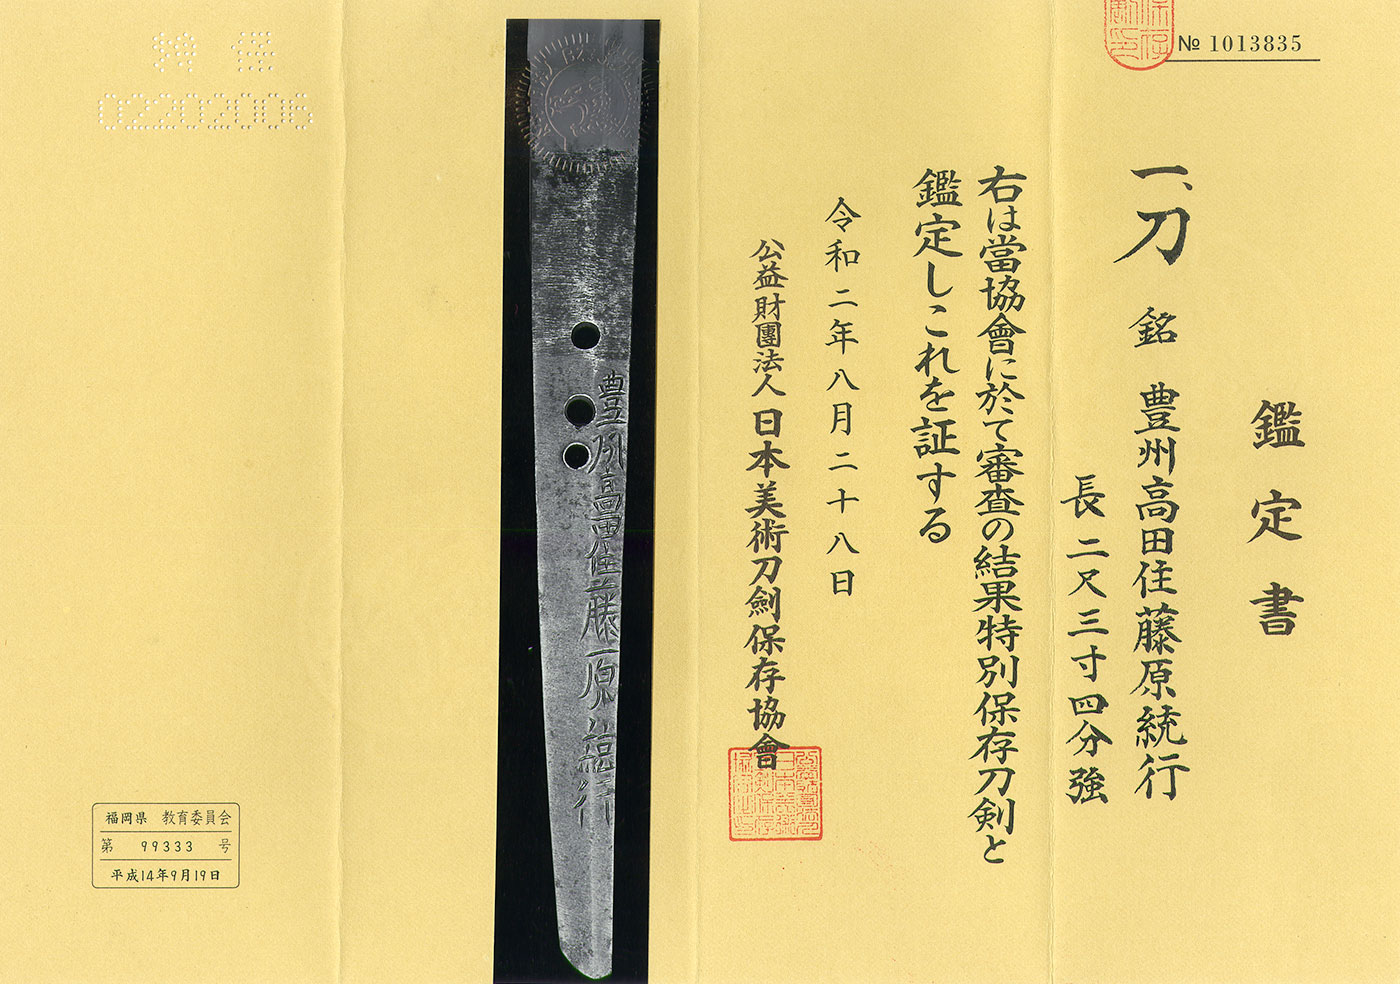 № 1013835
鑑定書
一、刀 銘 豊州高田住藤原統行
長二尺三寸四分強
右は當協會に於て審査の結果特別保存刀剣と
鑑定しこれを証する
令和二年八月二十八日
公益財團法人 日本美術刀劍保存協會
豊州高田住藤原統行
特保
02202006
福岡県 教育委員会
第 99333 号
平成14年9月19日